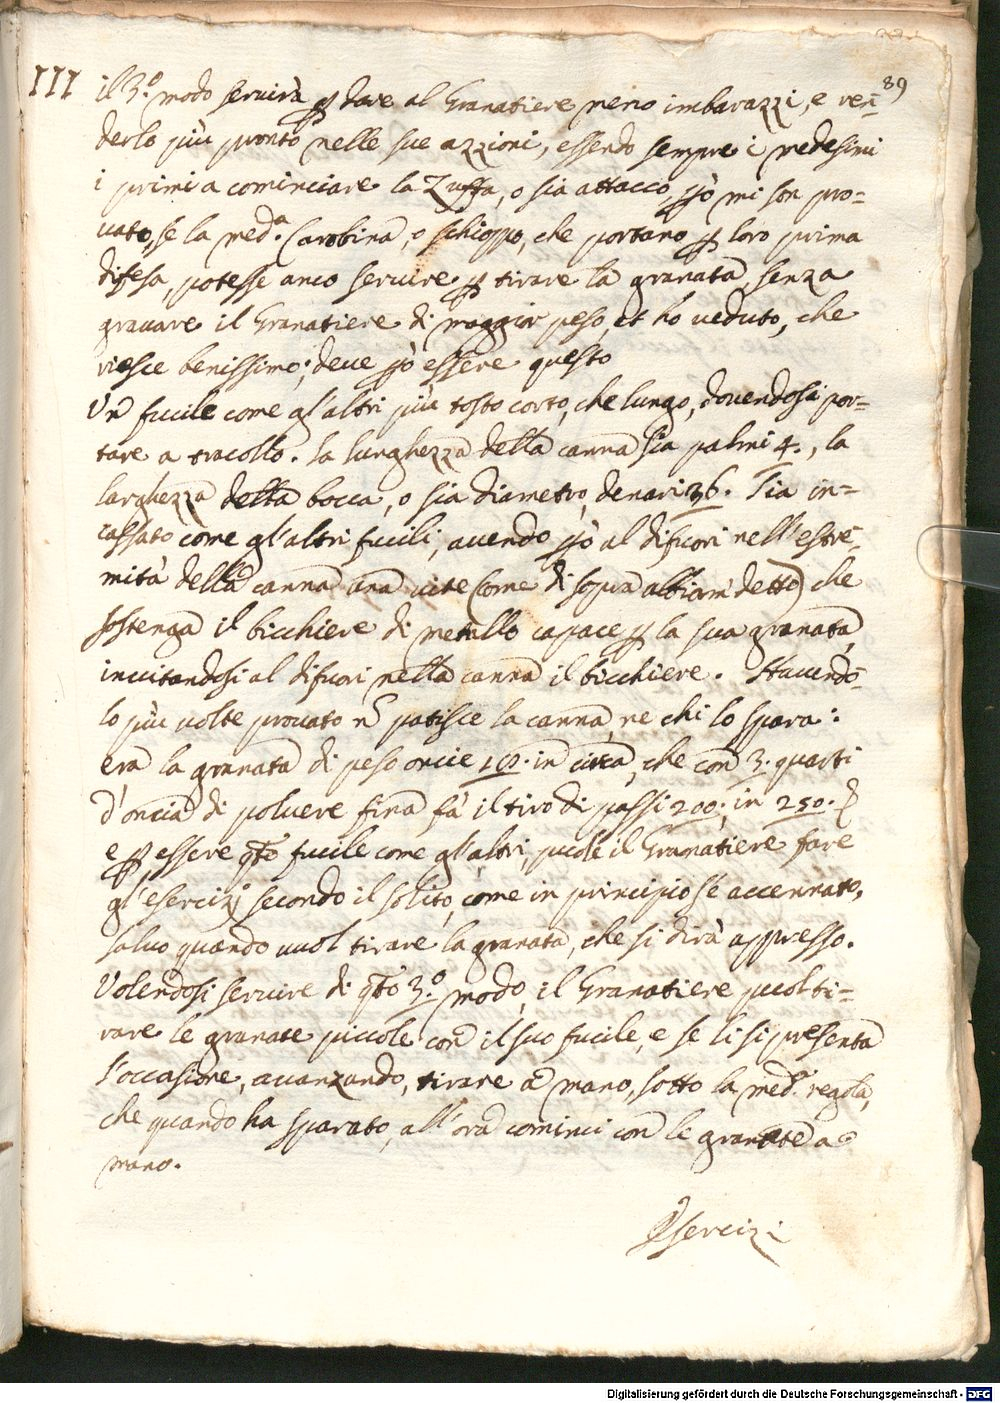 89
III il 3.º modo seruirà p dare al Granatiere meno imbarazzi, e ren=
derlo più pronto nelle sue azzioni, essendo sempre i medesimi
i primi a cominciare la Zuffa, o sia attacco, pò mi son pro=
uato, se la med.ª Carobina, o schioppo, che portano p loro prima
difesa, potesse anco seruire p tirare la granata, senza
grauare il Granatiere di maggior peso, et ho ueduto, che
riesce benissimo; deue pò essere questo
Vn fucile come gl'altri più tosto corto, che lungo, douendosi por=
tare a tracollo. la lunghezza della canna sia palmi 4., la
larghezza della bocca, o sia diametro, denari 36. Sia in=
cassato come gl'altri fucili, auendo pò al difuori nell'estre=
mità della canna una uite (come di sopra abbiam detto) che
sostenga il bicchiere di metallo capace p la sua granata,
inuitandosi al difuori nella canna il bicchiere. Hauendo=
lo più uolte prouato n patisce la canna, ne chi lo spara:
era la granata di peso oncie 10. in circa, che con 3. quarti
d'oncia di poluere fina fà il tiro di passi 200. in 250.
e p essere qto fucile come gl'altri, puole il Granatiere fare
gl'esercizj secondo il solito, come in principio se accennato,
saluo quando uuol tirare la granata, che si dirà appresso.
Volendosi seruire di qto 3.º modo, il Granatiere puol ti=
rare le granate piccole con il suo fucile, e se li si presenta
l'occasione, auanzando, tirare a mano, sotto la med.ª regola,
che quando ha sparato, all'ora cominci con le granate a
mano.
Esercizi
Digitalisierung gefördert durch die Deutsche Forschungsgemeinschaft - DFG